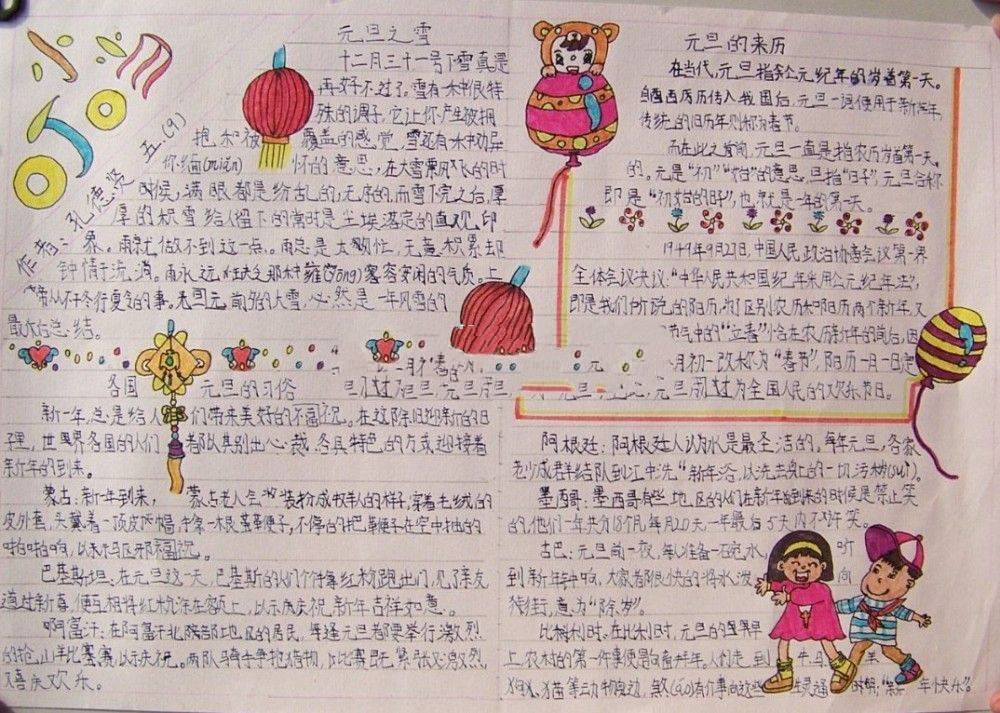 小学
五.(9)
作者:孔德贤
元旦之雪
十二月三十一号下雪真是
再好不过了,雪有一种很特
殊的调子,它让你产生被拥
抱和被覆盖的感觉,雪还有一种功异
你缅(miǎn)怀的意思,在大雪飘飞的时
时候,满眼都是纷乱的,无序的,而雪下完之后,厚
厚的积雪给人留下的常时是尘埃落定的直观印
界。雨就做不到这一点。雨总是太勤忙,无意积累却
钟情于流淌。雨永远
雍容安闲的气质。上
常从不冬行夏令的事。来自元前夕的大雪,必然是一年风雪的
最大总结。
各国元旦的习俗
新一年总是给人们带来美好的不福祝。在这除旧迎新的日
理,世界各国的人们都以其别出心裁,各具特色的方式迎接着
新年的到来。
蒙古:新年到来,蒙古老人会装扮成牧羊人的样子,穿着毛绒的
皮外套,头戴着一顶皮帽,手拿一根鞭子,不停的把鞭子在空中抽的
啪啪的响,以示驱邪福祝。
巴基斯坦:在元旦这一天,巴基斯的人们个个拿红粉跑出门,见了亲友
道过新喜,便互相将红粉涂在额上,以示庆祝新年吉祥如意。
啊富汗:在阿富汗北陵部地区的居民,每逢元旦都要举行激烈
的抢山羊比塞赛以示庆祝。两队骑手争抢猎物,比赛既紧张又激烈,
又喜庆欢乐。
元旦的来历
在当代,元旦指公元纪年的岁首第一天。
自西历传入我国后,元旦一词便用于新年,
传统的旧历年则称为春节。
而在此之前,元旦一直是指农历岁首第一天
的。元是“初”“始”的意思,旦指“日子”,元旦合称
即是“初始的日子”,也就是一年的第一天。
1949年9月27日,中国人民政治协商会议第一界
全体会议决议:“中华人民共和国纪年采用公元纪年法”,
即是我们所说的阳历,为了区别农历和阳历两个新年,又
节气中的“立春”恰在农历新年的前后,因
月初一改称为“春节”,阳历一月一日定
为元旦,元旦成为全国人民的欢乐节日。
阿根廷:阿根廷人认为水是最圣洁的,每年元旦,各家
老少成群结队到江中洗“新年浴,以洗去身上的一切污秽(suì)。
墨西哥:墨西哥有些地区的人们在新年到来的时候是禁止笑
的,他们一年共分18个月,每月20天,一年最后5天内不许笑。
古巴:元旦前一夜,每人准备一碗水,听
到新年钟响,大家都很快的将水泼向
街,意为“除岁”。
比利时:在比利时,元旦的早
上,农村的第一件事便是向拜年,人们走到牛马
狗、猫等动物身边,煞(shà)有介事向这些生灵通:“新年快乐”。